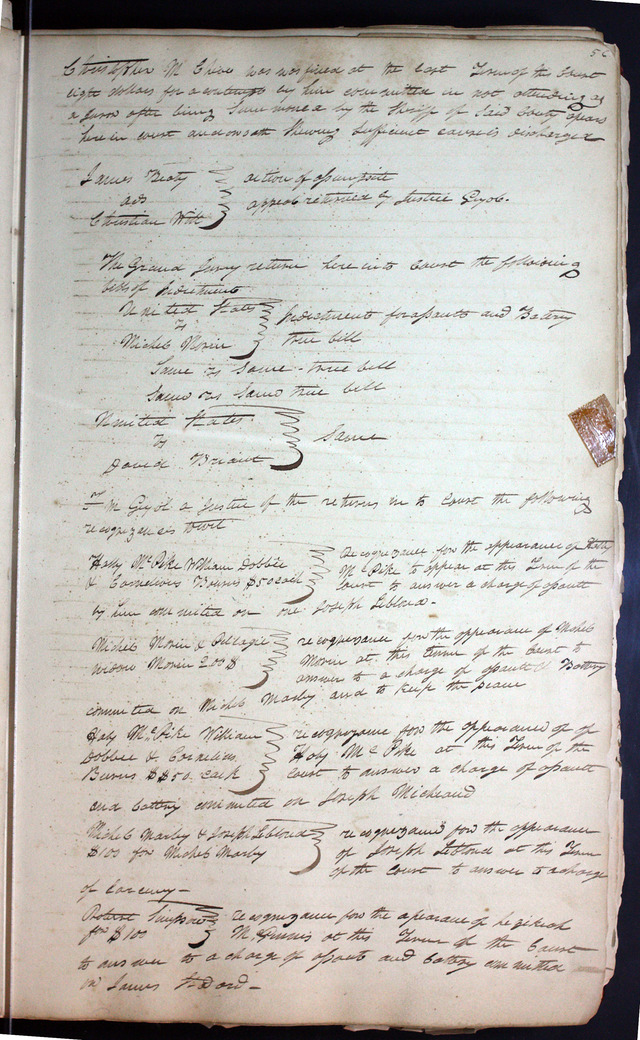 56
Christopher M was was fined at the last Term of the Court
eight dollars for a contempt by him committed in not attending as
a Juror after being Summoned by the Sheriff of Said County apears
here in court and on oath Shewing Sufficient cause is discharged
James Beaty
ads
Christian Witt
action of assumpsit
appeal returned by Justice Guyol.
The Grand Jury return here into Court the following
bills of Indictment
United States
vs
Michel Morin
Indictment for assault and Battery
true bill
Same vs Same - true bill
Same vs Same true bill
United States
vs
David
Same
Guyol a Justice of the returns in to Court the following
recognizences to wit
Haby Mc Pike William Dobbee
& Cornelieus Burns $50 each
Recognizance for the appearance of Haby
Mc Pike to appear at this Term of the
Court to answer a charge of assault
by him committed on one Joseph Leblond -
Michel Morin & Pelagie
widow Morin 200 $
recognizance for the appearance of Michel
Morin at this Term of the Court to
answer to a charge of assault & Battery
committed on Michel Marly and to keep the peace
Haby Mc Pike William
Dobbee & Cornelius
Burns $ $50. each
recognizance for the appearance of of
Haby Mc Pike at this Term of the
Court to answer a charge of assault
and battery committed on Joseph Micheaud
Michel Marly & Joseph Leblond
$100 for Michel Marly
recognizance for the appearance
of Joseph Leblond at this Term
of the Court to answer to a charge
of Larceny -
Robert Simpson
for $100
recognizance for the apearance of
Mc at this Term of the Court
to answer to a charge of assault and battery committed
on James